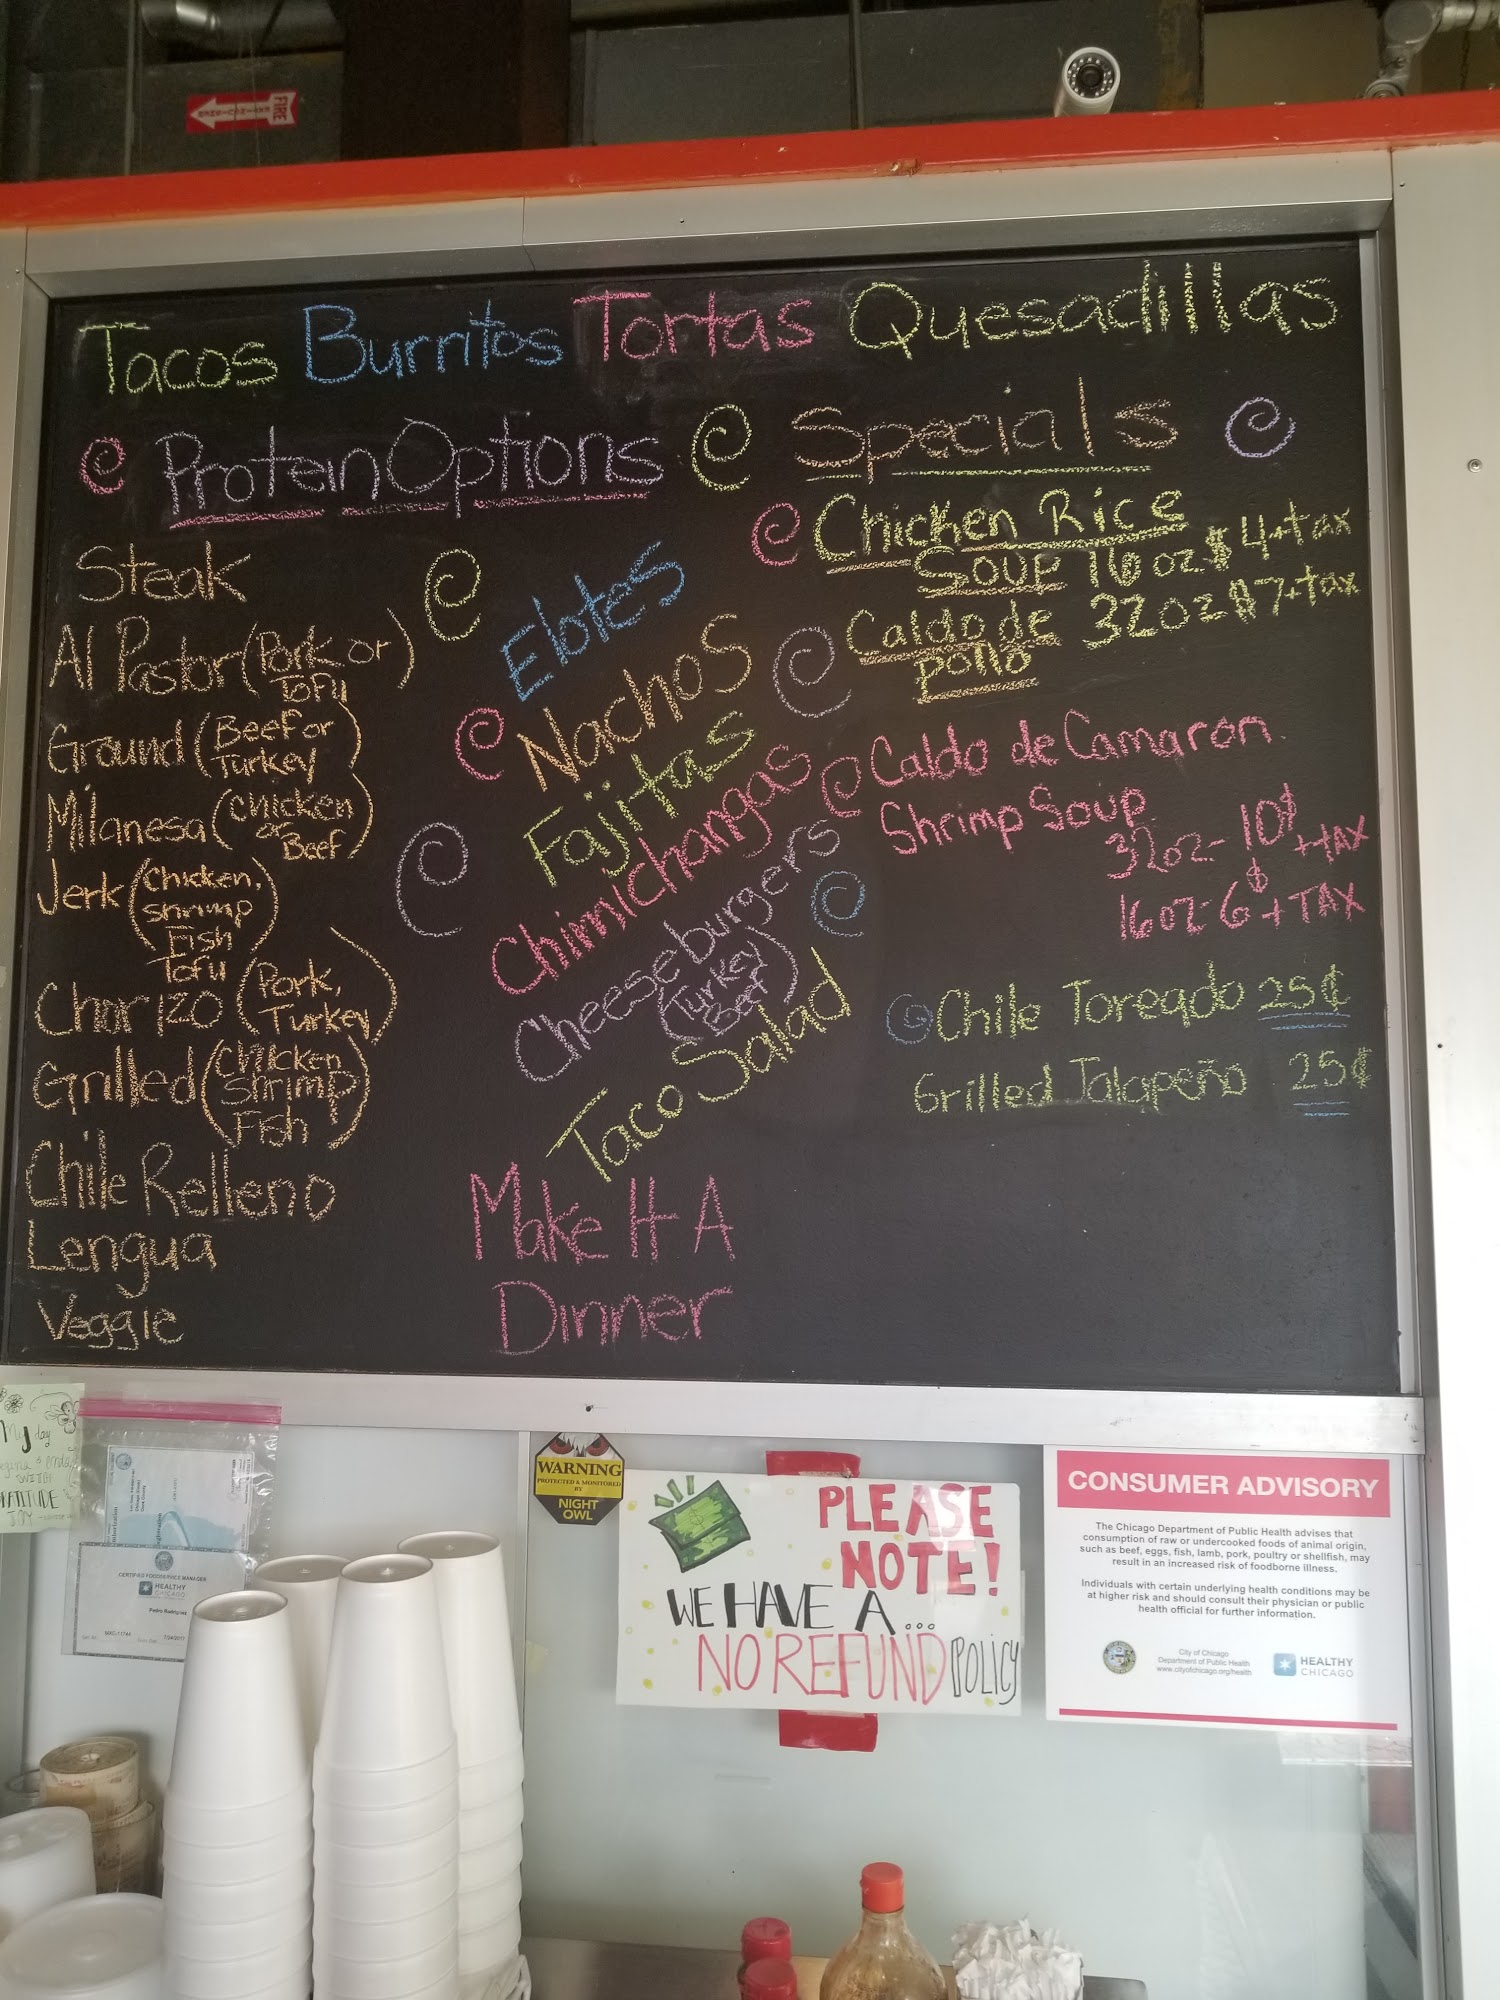 FIRE
Tacos Burritos Tortas Quesadillas
Protein Options
Steak
Al Pastor (Pork or
Tofu)
Ground (Beef or
Turkey)
Milanesa (Chicken
or
Beef)
Jerk (Chicken,
shrimp
Fish
Tofu)
Chorizo (Pork,
Turkey)
Grilled (Chicken
Shrimp
Fish)
Chile Relleno
Lengua
Veggie
Elotes
Nachos
Fajitas
Chimichangas
Cheeseburgers
(Turkey
Beef)
Taco Salad
Make It A
Dinner
Specials
Chicken Rice
Soup 16oz $4+tax
Caldo de 32oz $7+tax
pollo
Caldo de Camaron
Shrimp Soup
32oz- 10$ +TAX
16oz- 6$ + TAX
Chile Toreado 25¢
Grilled Jalapeño 25¢
My day
GRATITUDE
JOY
CERTIFIED FOODSERVICE MANAGER
HEALTHY
CHICAGO
Pedro Rodriguez
WARNING
PROTECTED & MONITORED
BY
NIGHT
OWL
PLEASE
NOTE!
WE HAVE A...
NO REFUND POLICY
CONSUMER ADVISORY
The Chicago Department of Public Health advises that
consumption of raw or undercooked foods of animal origin,
such as beef, eggs, fish, lamb, pork, poultry or shellfish, may
result in an increased risk of foodborne illness.
Individuals with certain underlying health conditions may be
at higher risk and should consult their physician or public
health official for further information.
City of Chicago
Department of Public Health
www.cityofchicago.org/health
HEALTHY
CHICAGO